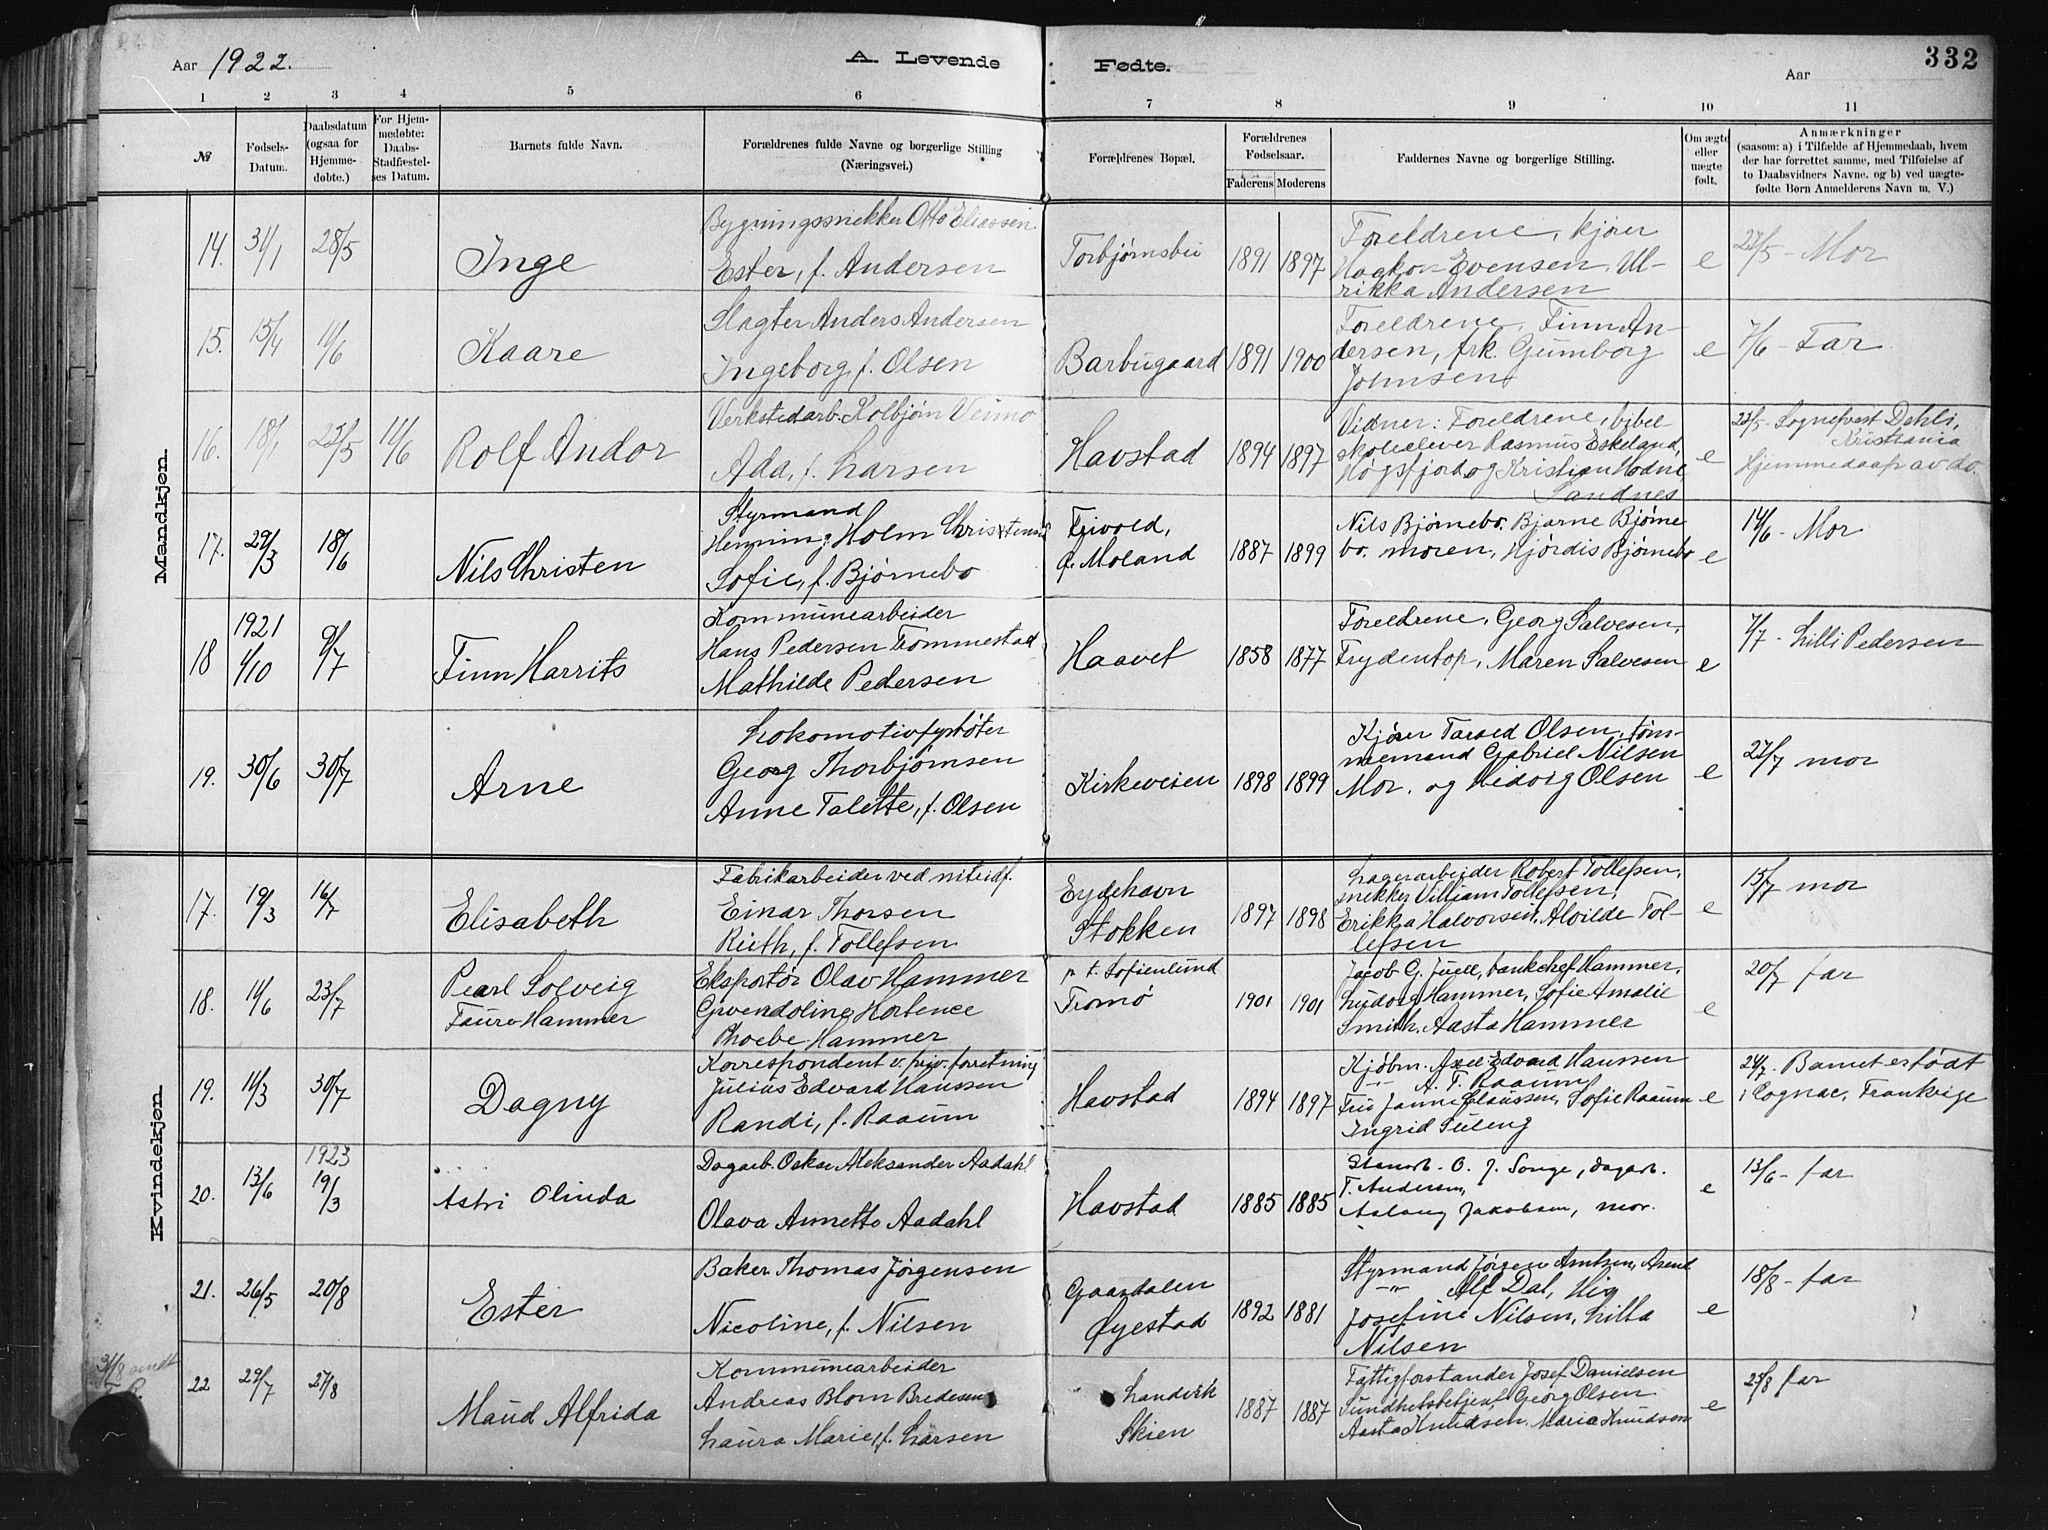 Aar 1922.
A. Levende Fødte.
Aar
332
1 2 3 4 5 6 7 8 9 10 11
№
Fødsels-
Datum.
Daabsdatum
(ogsaa for
Hjemme-
døbte.)
For Hjem-
medøbte:
Daabs-
Stadfæstel-
ses Datum.
Barnets fulde Navn.
Forældrenes fulde Navne og borgerlige Stilling
(Næringsvei.)
Forældrenes Bopæl.
Forældrenes
Fødselsaar.
Faderens Moderens
Faddernes Navne og borgerlige Stilling.
Om ægte
eller
uægte
født.
Anmærkninger
(saasom: a) i Tilfælde af Hjemmedaab, hvem
der har forrettet samme, med Tilføielse af
to Daabsvidners Navne. og b) ved uægte-
fødte Børn Anmelderens Navn m. V.)
Mandkjøn.
14. 31/1 28/5
Inge
Bygningssnekker Otto Eliassen
Ester, f. Andersen
Torbjørnsbu
1891 1897
Foreldrene, kjører
Haakon Evensen, Ul-
rikka Andersen
e
27/5 - Mor
15. 15/4 11/6
Kaare
Slagter Anders Andersen
Ingeborg, f. Olsen
Barbugaard
1891 1900
Foreldrene, Finn An-
dersen, frk. Gunborg
Johnsen
e
7/6 - Far
16. 18/1 25/5 11/6
Rolf Andor
Verkstedarb. Kolbjørn Veimo
Ada, f. Larsen
Havstad
1894 1897
Vidner: Foreldrene, bibel-
skoleelever Rasmus Eskeland,
Høgsfjord og Kristian Hodne,
Sandnes
e
23/5 - Sogneprest Dehli,
Kristiania
Hjemmedaap av do.
17. 29/3 18/6
Nils Christen
Styrmand
Henning Holm Christensen
Sofie, f. Bjørnebo
Frivold,
Ø. Moland
1887 1899
Nils Bjørnebo. Bjarne Bjørne
bo. moren, Hjørdis Bjørnebo
e
14/6 - Mor
18 1921
1/10 9/7
Finn Harrits
Kommunearbeider
Hans Pedersen Trommestad
Mathilde Pedersen
Haavet
1858 1877
Foreldrene, Georg Salvesen,
Frydentop, Maren Salvesen
e
7/7 - Lilli Pedersen
19. 30/6 30/7
Arne
Lokomotivfyrbøter
Georg Thorbjørnsen
Anne Talette, f. Olsen
Kirkeveien
1898 1899
Kjører Tarald Olsen, tøm-
mermand Gabriel Nilsen
Mor. og Hedvig Olsen
e
27/7 mor
Kvindekjøn.
17. 19/3 16/7
Elisabeth
Fabrikarbeider ved nitridf.
Einar Thorsen
Ruth, f. Tollefsen
Eydehavn
Stokken
1897 1898
Lagerarbeider Robert Tollefsen,
snekker Villiam Tollefsen,
Erikka Halvorsen, Alvilde Tol-
lefsen
e
15/7 mor
18. 11/6 23/7
Pearl Solveig
Faure Hammer
Eksportør Olav Hammer
Gwendoline Hortence
Phoebe Hammer
p. t. Sofienlund
Tromø
1901 1901
Jacob G. Juell, bankchef Hammer,
Ludvig Hammer, Sofie Amalie
Smith, Aasta Hammer
e
20/7 far
19. 11/3 30/7
Dagny
Korrespondent v. priv. forretning
Julius Edvard Hanssen
Randi, f. Raaum
Havstad
1894 1897
Kjøbm. Axel Edvard Hanssen
-"- A. T. Raaum
Fru Janna Claussen, Sofie Raaum
Ingrid Suleng
e
24/7. Barnet er født
i Cognac, Frankrige
20. 13/6 1923
19/3
Astri Olinda
Dagarb. Oskar Aleksander Aadahl
Olava Annette Aadahl
Havstad
1885 1885
Stenarb. O. J. Songe, dagarb.
T. Andersen,
Aslaug Jakobsen, mor.
e
13/6 - far
21. 26/5 20/8
Ester
Baker Thomas Jørgensen
Nicoline, f. Nilsen
Gaardalen
Øyestad
1892 1881
Styrmand Jørgen Arntsen, Arend
-"- Alf Dal, His
Josefine Nilsen, Lilla
Nilsen
e
18/8 - far
31/8 sendt
22 29/7 27/8
Maud Alfrida
Kommunearbeider
Andreas Blom Bredesen
Laura Marie, f. Larsen
Landvik
Skien
1887 1887
Fattigforstander Josef Danielsen
Sundhetsbetjent Georg Olsen
Aasta Knudsen. Maria Knudsen
e
25/8 far